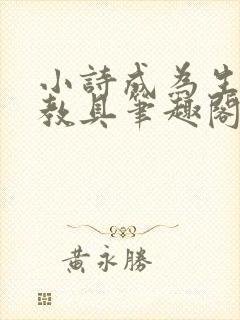 小詩成為生
教具筆趣閣
黃永勝